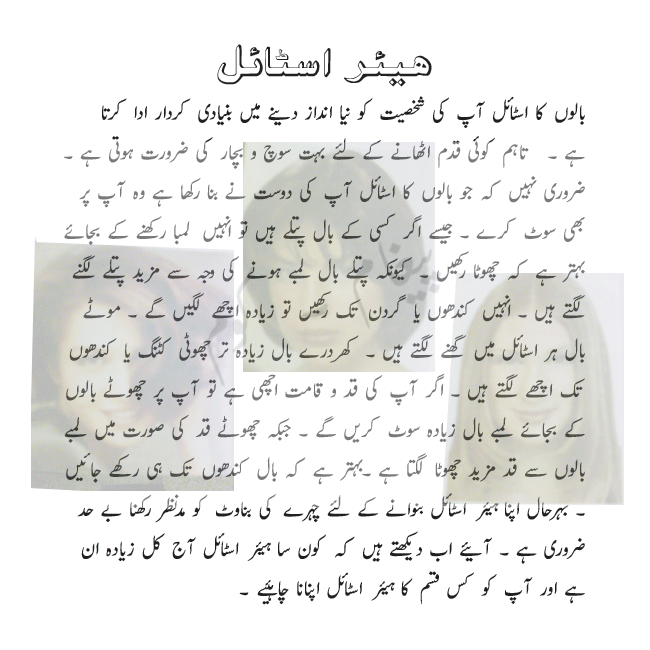 ھیئر اسٹائل
بالوں کا اسٹائل آپ کی شخصیت کو نیا انداز دینے میں بنیادی کردار ادا کرتا
ہے ۔ تاہم کوئی قدم اٹھانے کے لئے بہت سوچ و بچار کی ضرورت ہوتی ہے ۔
ضروری نہیں کہ جو بالوں کا اسٹائل آپ کی دوست نے بنا رکھا ہے وہ آپ پر
بھی سوٹ کرے ۔ جیسے اگر کسی کے بال پتلے ہیں تو انہیں لمبا رکھنے کے بجائے
بہتر ہے کہ چھوٹا رکھیں ۔ کیونکہ پتلے بال لمبے ہونے کی وجہ سے مزید پتلے لگنے
لگتے ہیں ۔ انہیں کندھوں یا گردن تک رکھیں تو زیادہ اچھے لگیں گے ۔ موٹے
بال ہر اسٹائل میں گھنے لگتے ہیں ۔ کھردرے بال زیادہ تر چھوٹی کٹنگ یا کندھوں
تک اچھے لگتے ہیں ۔ اگر آپ کی قد و قامت اچھی ہے تو آپ پر چھوٹے بالوں
کے بجائے لمبے بال زیادہ سوٹ کریں گے ۔ جبکہ چھوٹے قد کی صورت میں لمبے
بالوں سے قد مزید چھوٹا لگتا ہے ۔بہتر ہے کہ بال کندھوں تک ہی رکھے جائیں
۔ بہرحال اپنا ہیئر اسٹائل بنوانے کے لئے چہرے کی بناوٹ کو مدنظر رکھنا بے حد
ضروری ہے ۔ آیئے اب دیکھتے ہیں کہ کون سا ہیئر اسٹائل آج کل زیادہ ان
ہے اور آپ کو کس قسم کا ہیئر اسٹائل اپنانا چاہئیے ۔